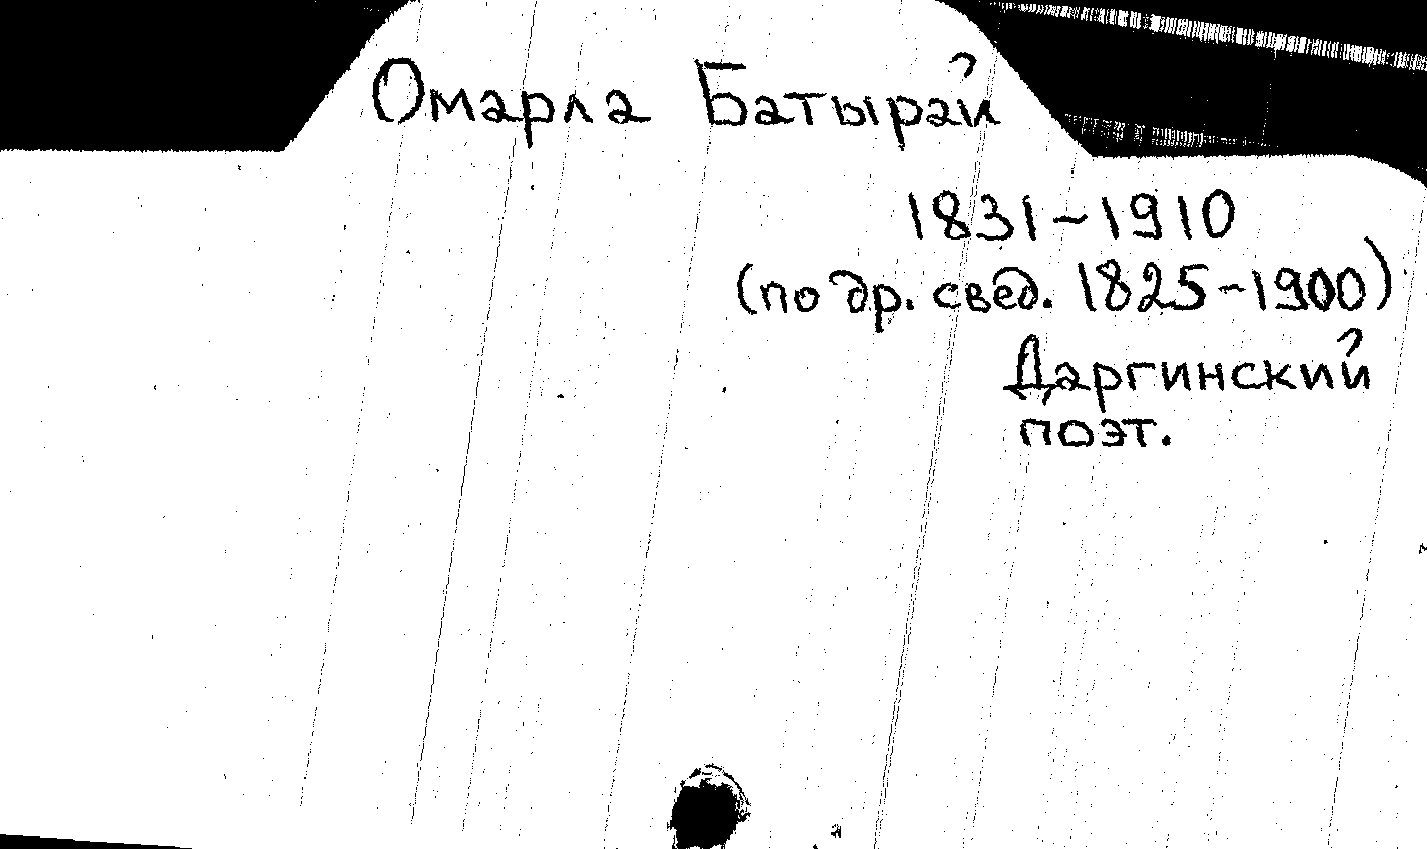 Омарла Батырай
1831-1910
(по др. свед. 1825-1900)
Даргинский
поэт.